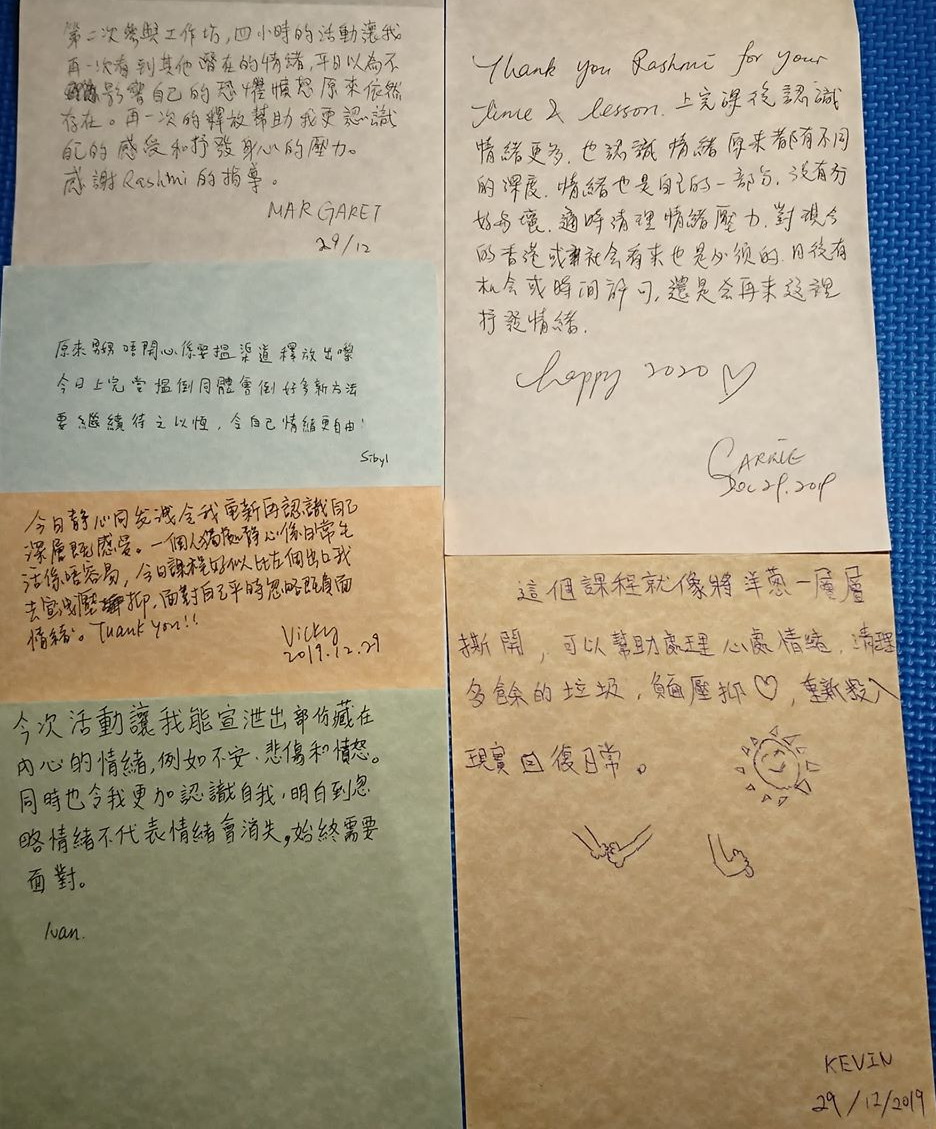 第二次參與工作坊，四小時的活動讓我
再一次看到其他潛在的情緒，平日以為不
影響自己的恐懼憤怒原來依然
存在。再一次的釋放幫助我更認識
自己的感受和抒發身心的壓力。
感謝Rashmi的指導。
MARGARET
29/12
原來 唔開心係要搵渠道釋放出嚟
今日上完堂搵倒同體會倒好多新方法
要繼續待之以恆，令自己情緒更自由！
Sibyl
今日靜心同发洩令我重新再認識自己
深層既感受。一個人獨處静心係日常生
活係唔容易，今日課程好似比左個出口我
去宣洩壓抑，面對自己平時忽略既負面
情緒。Thank you!!
Vicky
2019.12.29
今次活動讓我能宣泄出部份藏在
內心的情緒，例如不安、悲傷和憤怒。
同時也令我更加認識自我，明白到忽
略情緒不代表情緒會消失，始終需要
面對。
Ivan.
Thank you Rashmi for your
time & lesson. 上完課後認識
情緒更多，也認識情緒原來都有不同
的深度，情緒也是自己的一部分，沒有分
好與壞，適時清理情緒壓力，對現今
的香港或社會看來也是必須的，日後有
机会或時间許可，還是会再來这裡
抒發情緒。
happy 2020 ♡
CARRIE
Dec 29, 2019
這個課程就像將洋蔥一層層
撕開，可以幫助處理心處情緒，清理
多餘的垃圾，負面壓抑♡，重新投入
現實回復日常。
KEVIN
29/12/2019